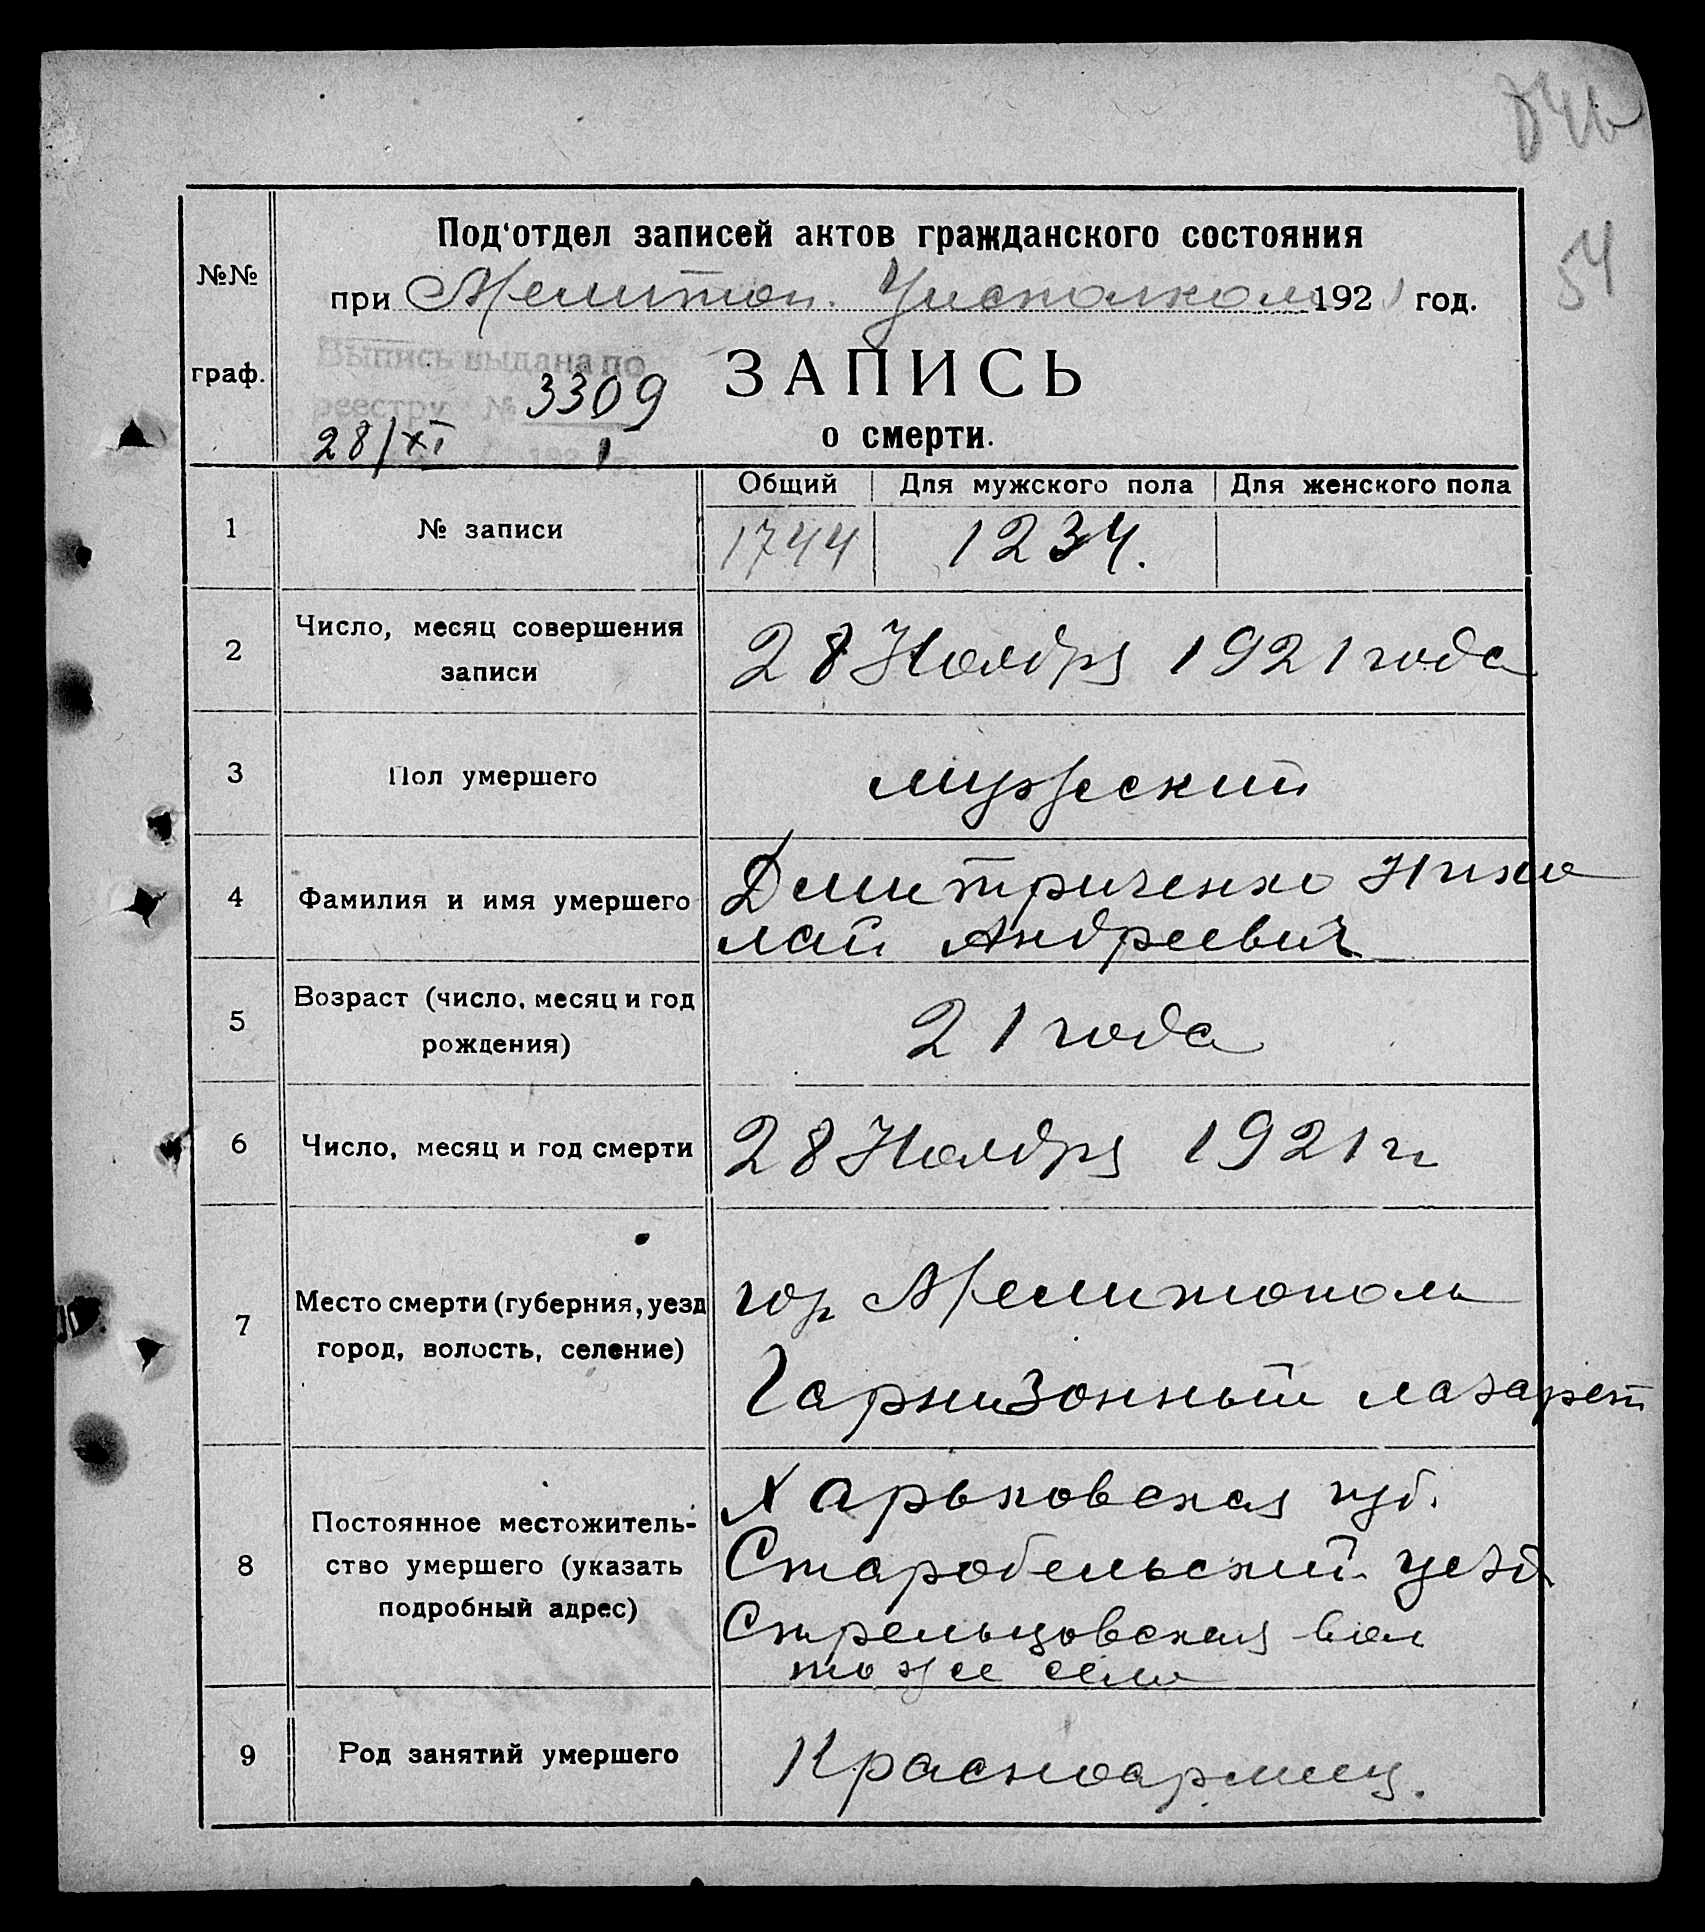 54
Под'отдел записей актов гражданского состояния
№№
при Мелитоп. Уисполком 1921 год.
Выпись выдана по
граф.
реестру № 3309
ЗАПИСЬ
28/XI 1921
о смерти.
Общий Для мужского пола Для женского пола
1 № записи 1744 1234.
2 Число, месяц совершения
записи
28 Ноября 1921 года
3 Пол умершего мужеский
4 Фамилия и имя умершего
Дмитриченко Нико
лай Андреевич
5 Возраст (число, месяц и год
рождения)
21 года
6 Число, месяц и год смерти 28 Ноября 1921 г
7 Место смерти (губерния, уезд
город, волость, селение)
гор Мелитополь
Гарнизонный лазарет
8 Постоянное местожитель-
ство умершего (указать
подробный адрес)
Харьковская губ.
Старобельский уезд
Стрельцовская вол
то же село
9 Род занятий умершего Красноармеец.